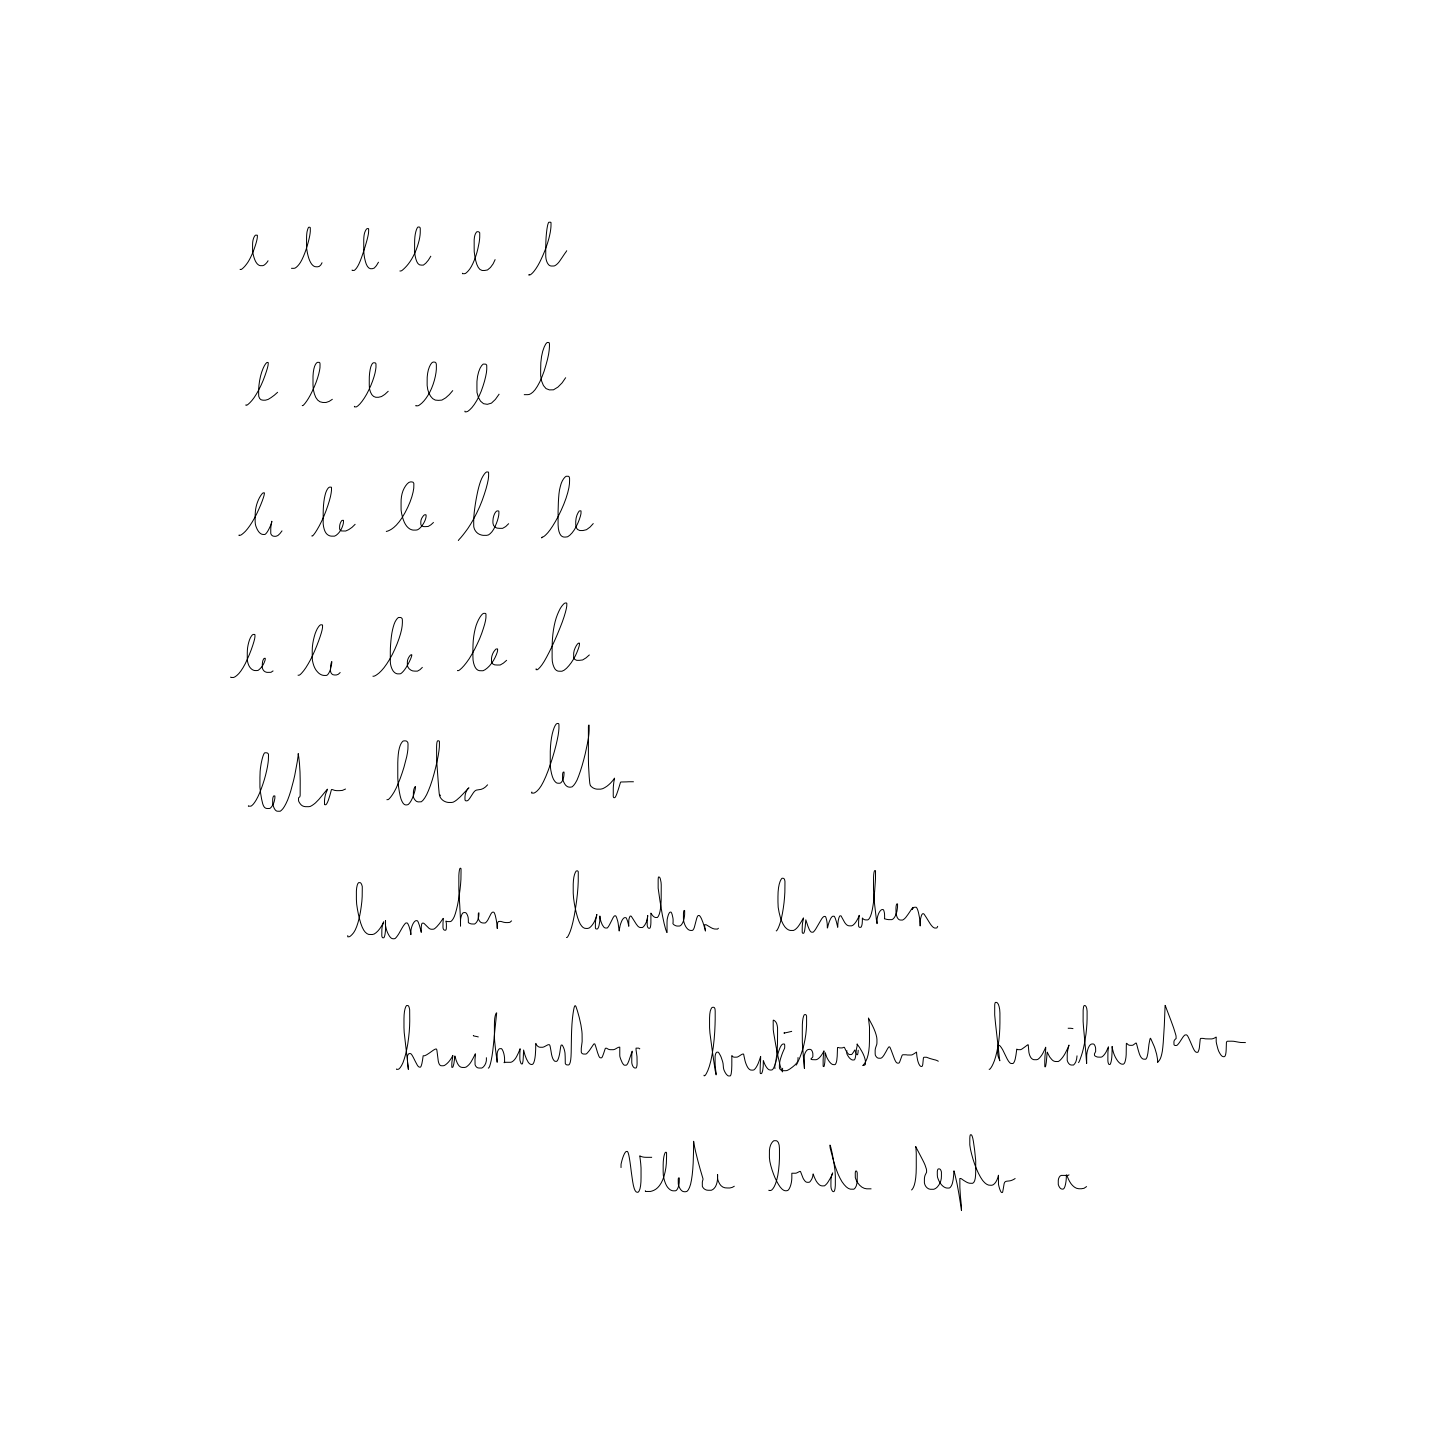 l l l l l l
l l l l l l
le le le le le
le le le le le
leto leto leto
lamoken lamoken lamoken
hračkarstvo hračkarstvo hračkarstvo
V lete bude teplo a